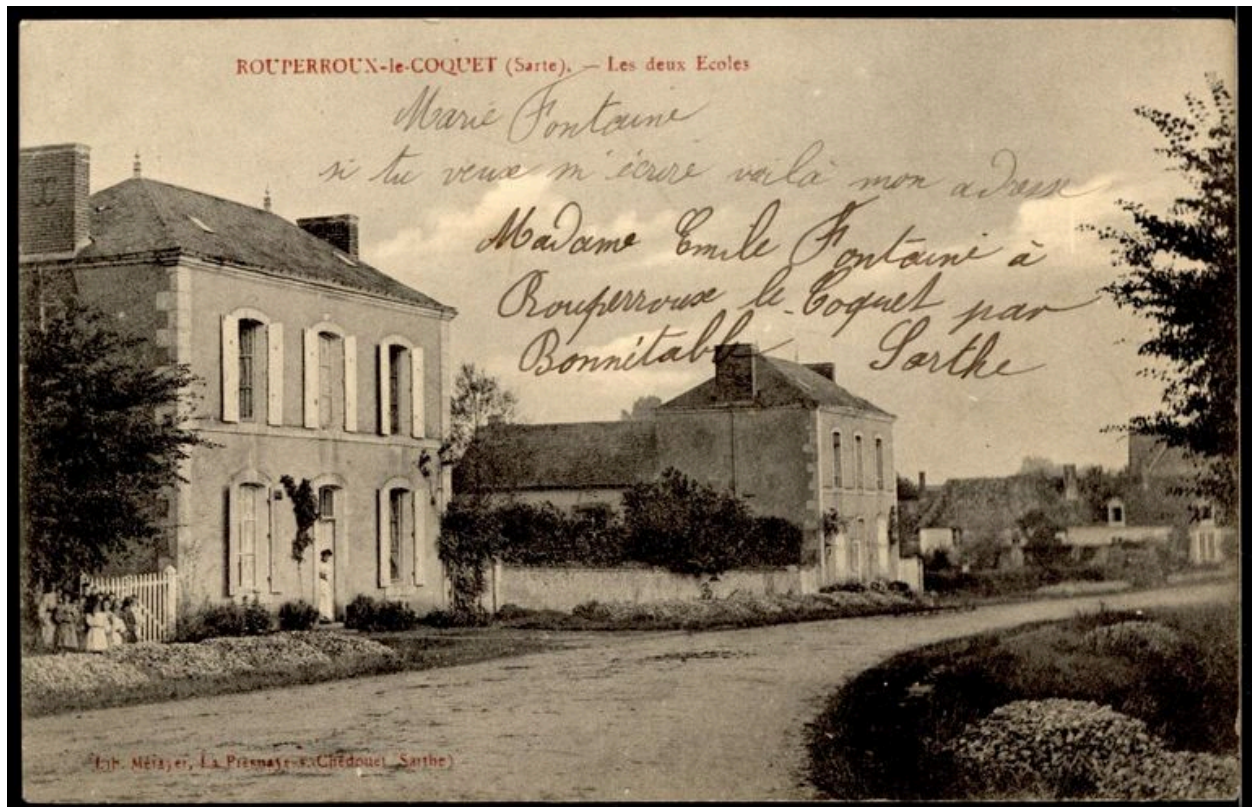 ROUPERROUX-le-COQUET (Sarte). — Les deux Ecoles
Marie Fontaine
si tu veux m'écrire voilà mon adresse
Madame Emile Fontaine à
Rouperroux le-Coquet par
Bonnétable Sarthe
Lib. Métayer, La Fresnaye-s.-Chédouet (Sarthe)